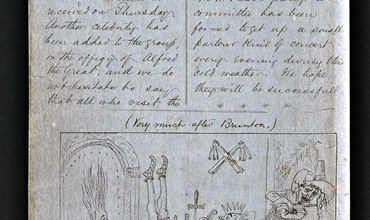 received on Thursday
Another celebrity has
been added to the group,
in the effigy of Alfred
the Great, and we do
not hesitate to say
that all who visit the
committee has been
formed to get up a small
parlour kind of concert
every evening during the
cold weather. We hope
they will be successfull
* * * *
(Very much after Brunton.)